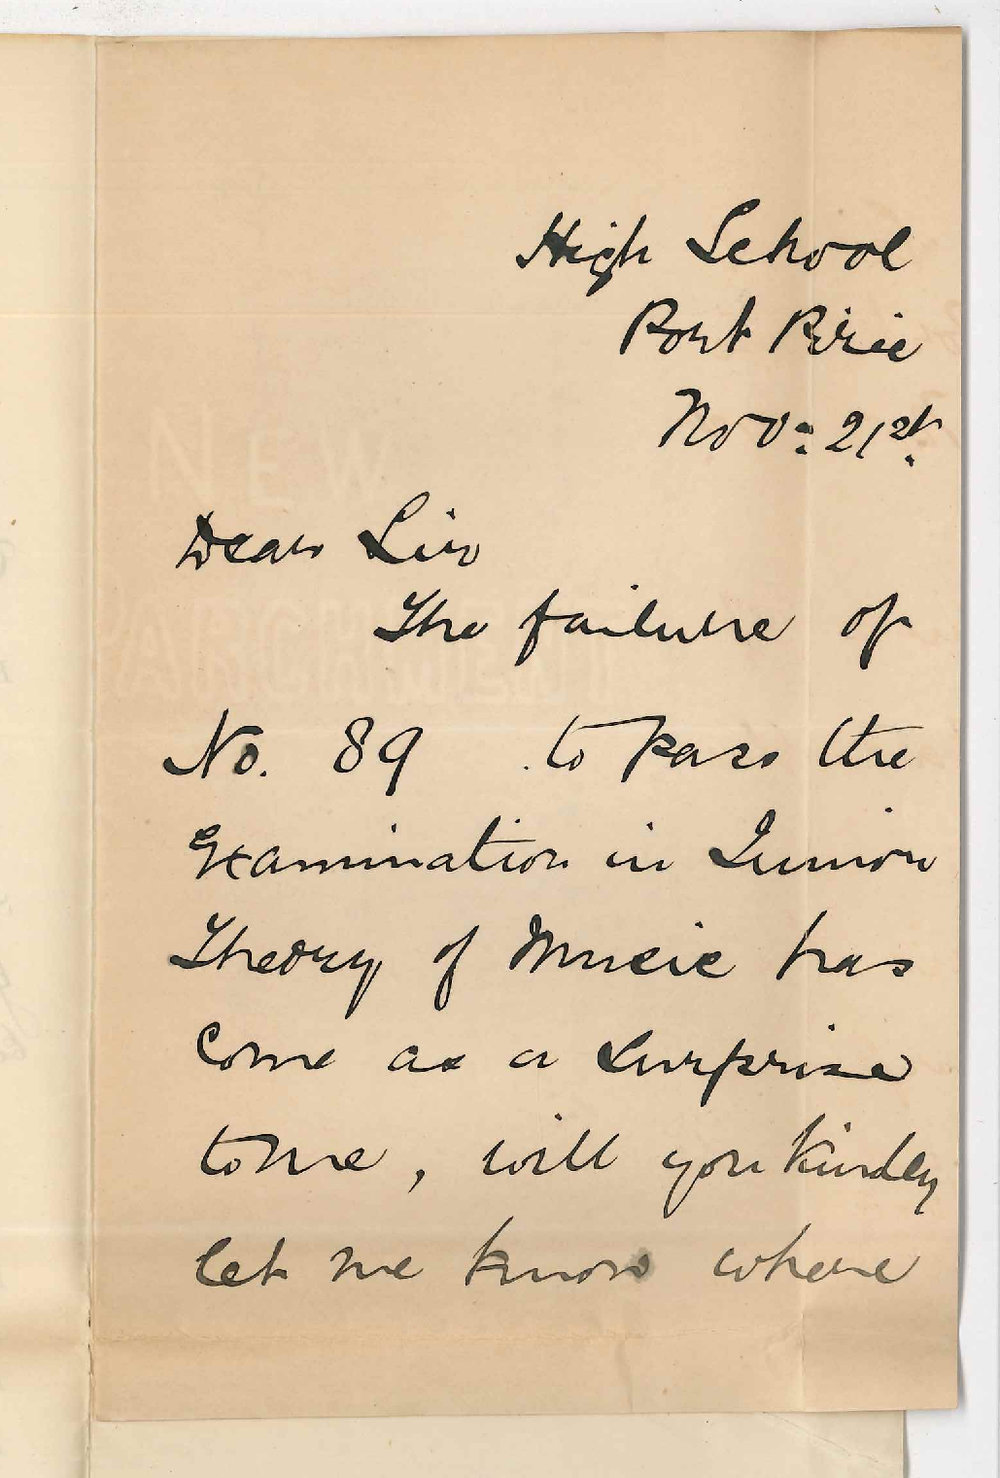 High School
Port Pirie
Nov: 21st.
Dear Sir
The failure of
No. 89 to pass the
Examination in Junior
Theory of Music has
come as a surprise
to me, will you kindly
let me know where